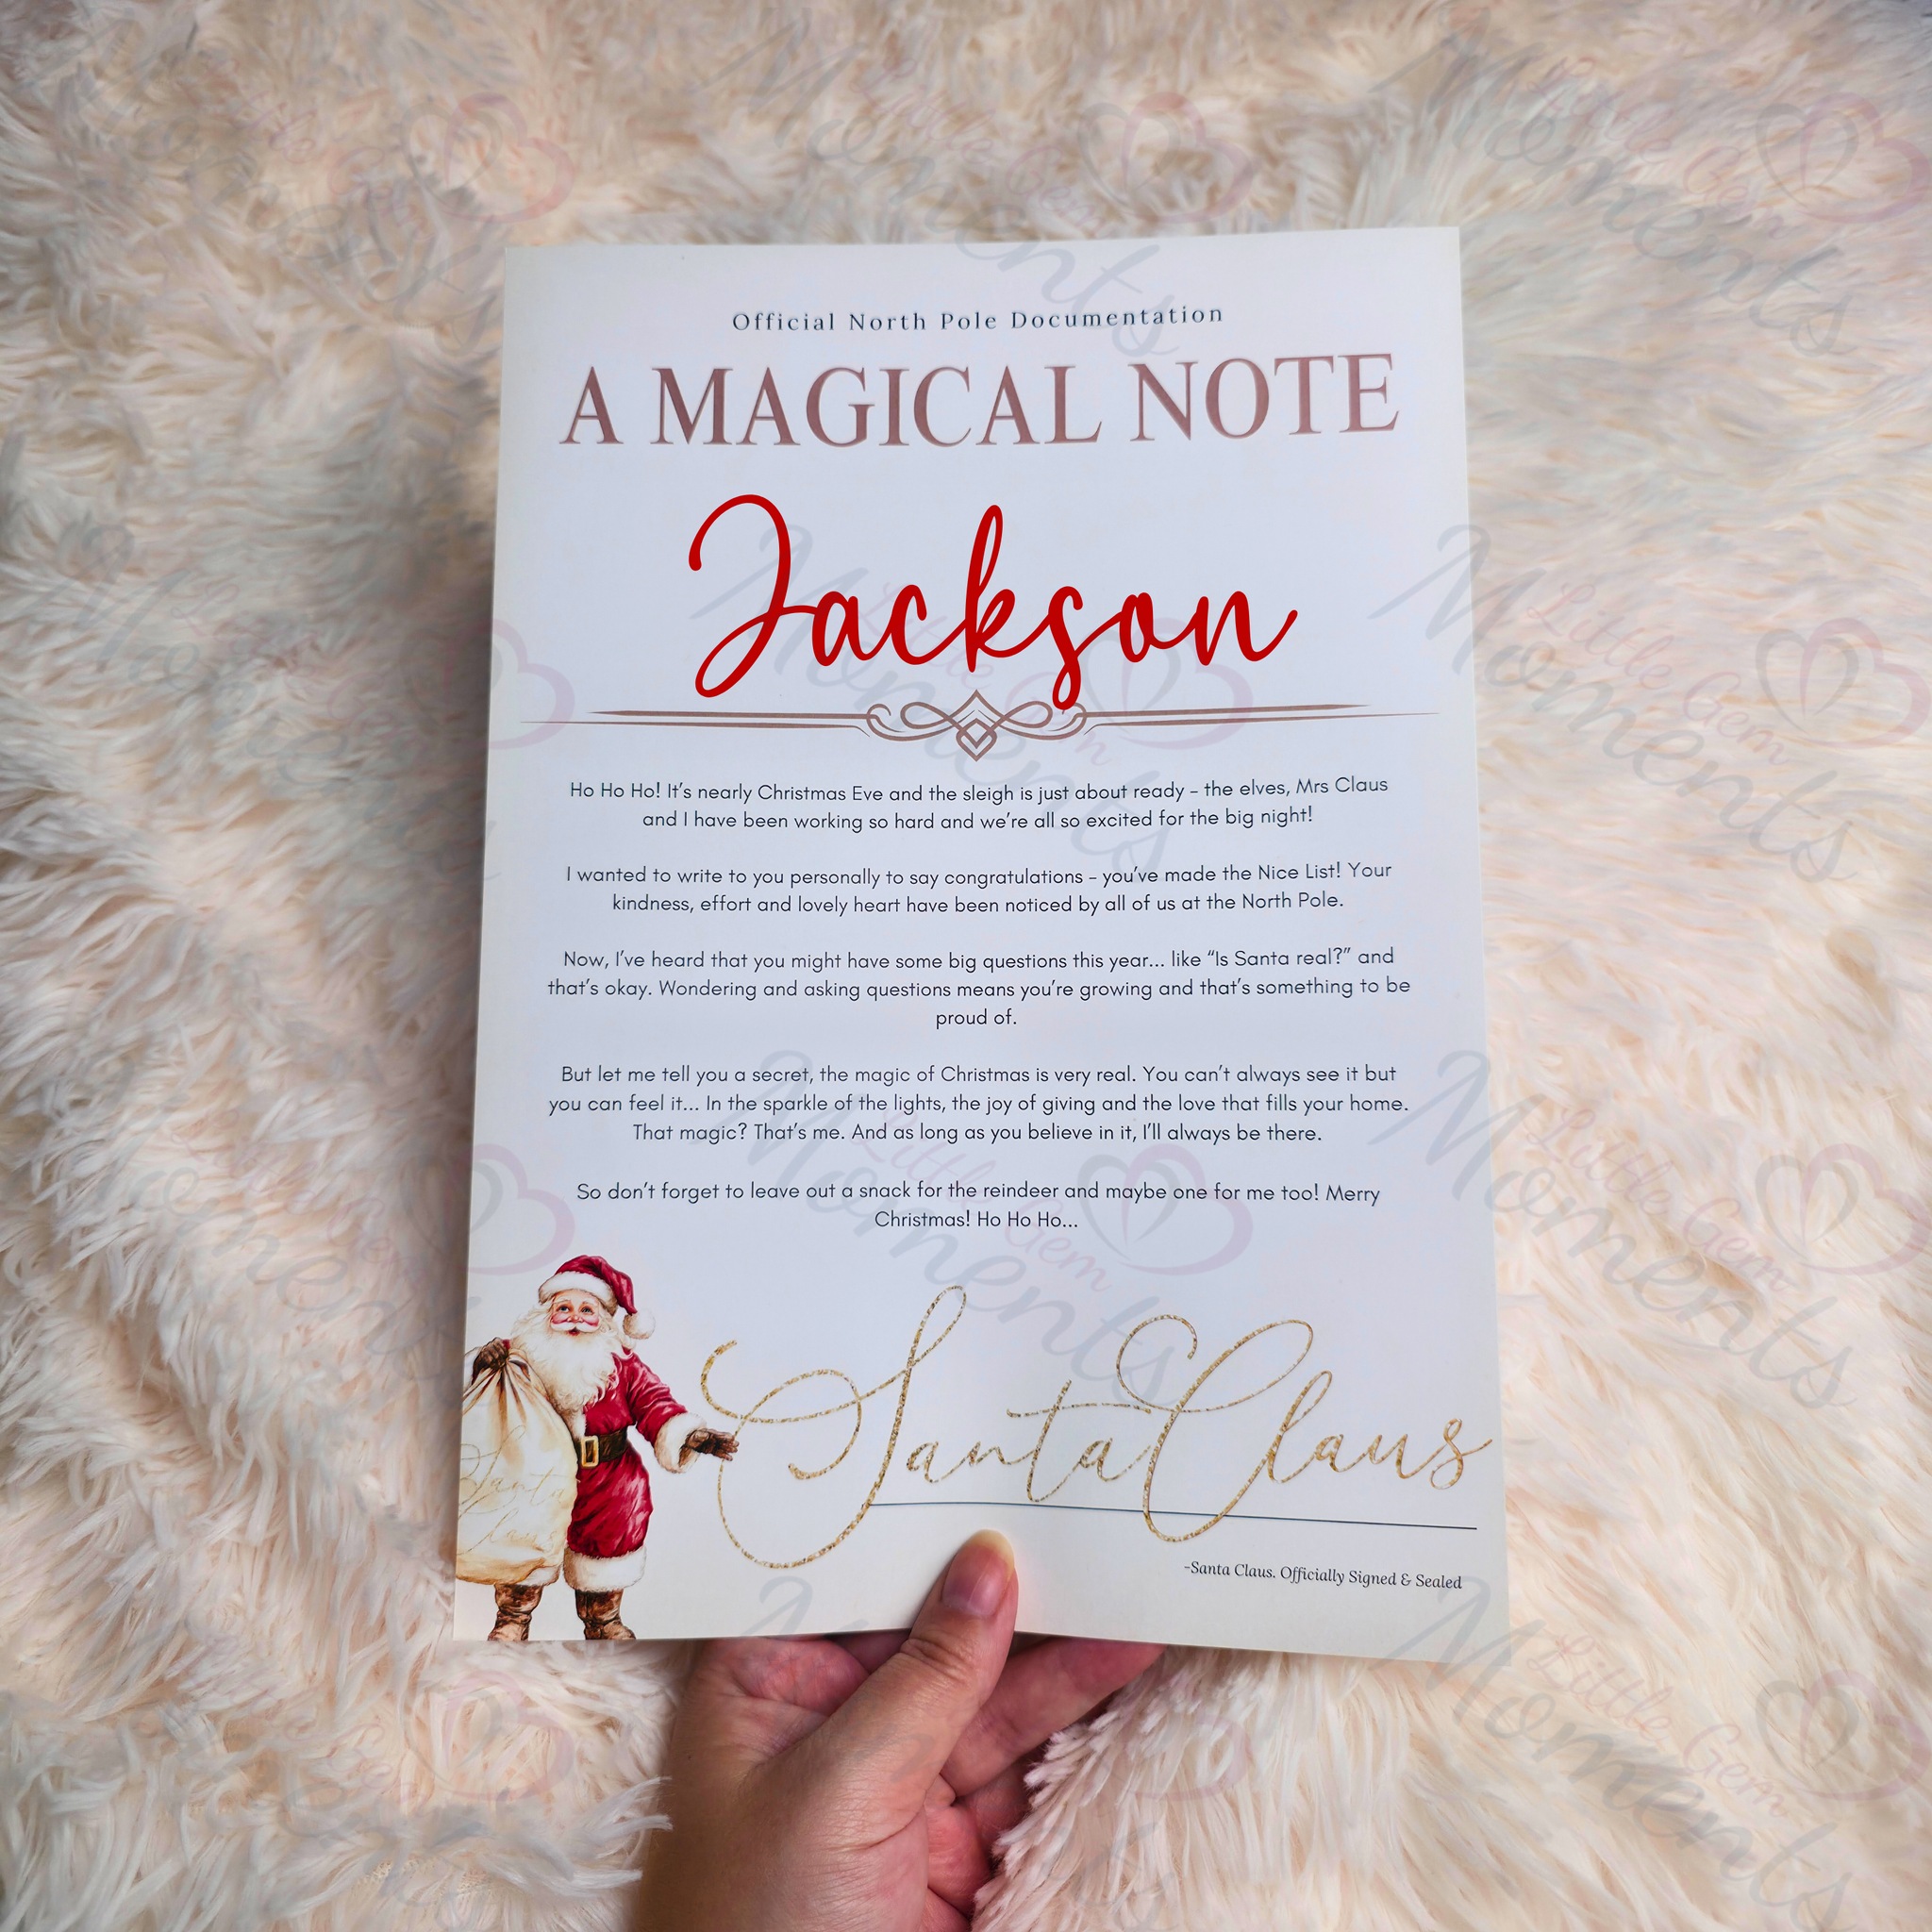 Official North Pole Documentation
A MAGICAL NOTE
Jackson
Ho Ho Ho! It's nearly Christmas Eve and the sleigh is just about ready – the elves, Mrs Claus
and I have been working so hard and we're all so excited for the big night!
I wanted to write to you personally to say congratulations – you've made the Nice List! Your
kindness, effort and lovely heart have been noticed by all of us at the North Pole.
Now, I've heard that you might have some big questions this year... like “Is Santa real?” and
that's okay. Wondering and asking questions means you're growing and that's something to be
proud of.
But let me tell you a secret, the magic of Christmas is very real. You can't always see it but
you can feel it... In the sparkle of the lights, the joy of giving and the love that fills your home.
That magic? That's me. And as long as you believe in it, I'll always be there.
So don't forget to leave out a snack for the reindeer and maybe one for me too! Merry
Christmas! Ho Ho Ho...
Santa Claus
Santa
Claus
-Santa Claus. Officially Signed & Sealed
Little Gem
Moments